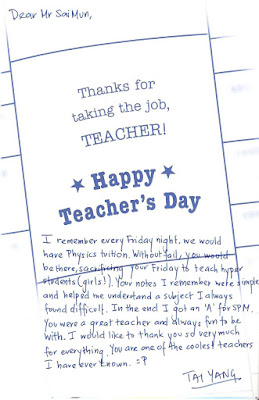 Dear Mr Sai Mun,
Thanks for
taking the job,
TEACHER!
Happy
Teacher's Day
I remember every Friday night, we would
have Physics tuition. Without fail, you would
be there, sacrificing your Friday to teach hyper
students (girls!). Your notes I remember were simple
and helped me understand a subject I always
found difficult. In the end I got an 'A' for SPM.
You were a great teacher and always fun to be
with. I would like to thank you so very much
for everything. You are one of the coolest teachers
I have ever known. =P
TAI YANG